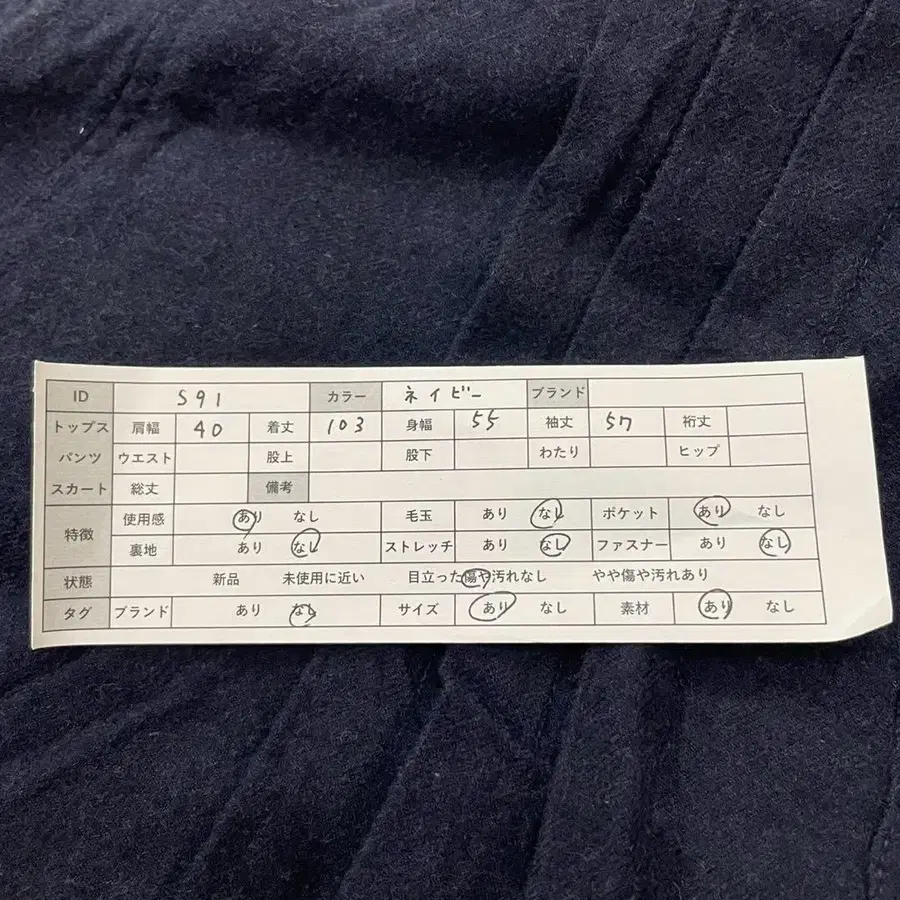 ID S91 カラー ネイビー ブランド
トップス 肩幅 40 着丈 103 身幅 55 袖丈 57 裄丈
パンツ ウエスト 股上 股下 わたり ヒップ
スカート 総丈 備考
特徴 使用感 あり なし 毛玉 あり なし ポケット あり なし
裏地 あり なし ストレッチ あり なし ファスナー あり なし
状態 新品 未使用に近い 目立った傷や汚れなし やや傷や汚れあり
タグ ブランド あり なし サイズ あり なし 素材 あり なし